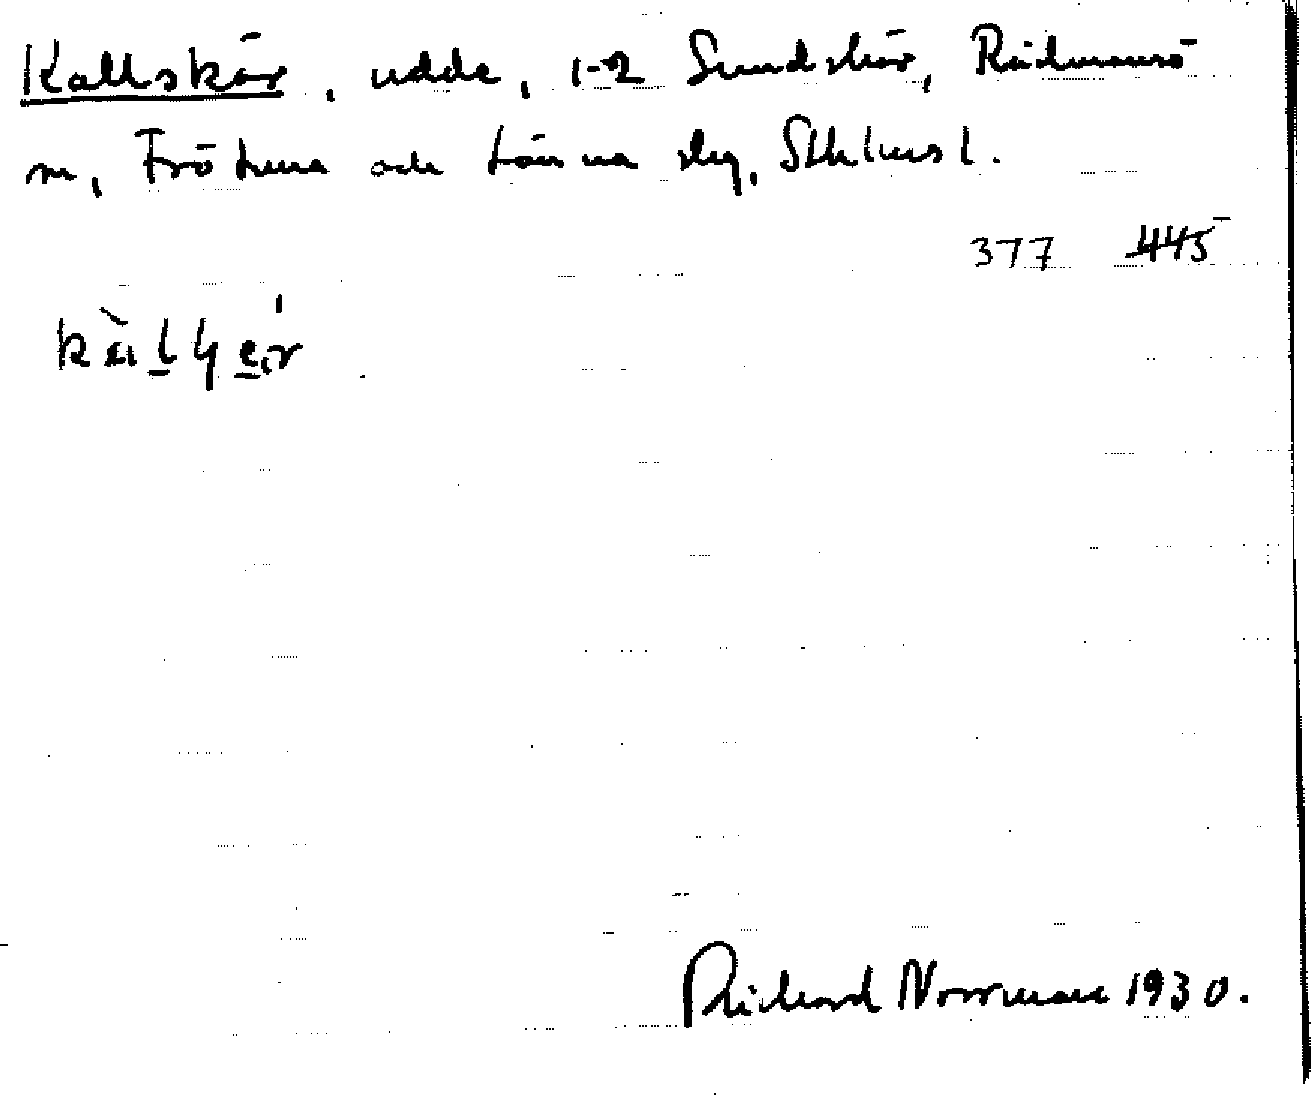 Kallskär, udde, 1-2 Sundskär, Rådmansö
sn, Frötuna och Länna skg, Sthlms l.
377 445
Richard Norrman 1930.